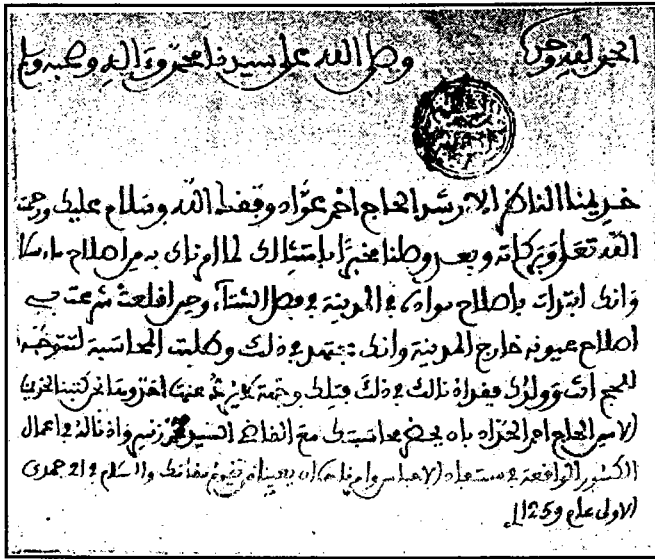 الحمد لله وحده وصلى الله على سيدنا محمد وءاله وصحبه وسلم
خديمنا الناظر الارشد الحاج احمد عواد وفقك الله وسلام عليك ورحمت
الله تعلى وبركاته وبعد وصلنا مخبرا بامتثالك لما امرناك به من اصلاح ماء سلا
وانك ابتدات باصلاح مواده في المدينة في فصل الشتاء وحين اقلعت شرعت في
اصلاح عيونه خارج المدينة وانك مجتهد في ذلك وطلبت المحاسبة لتتوجه
للحج انت وولدك فقد اذنا لك في ذلك وجهة عنها نحن كتبنا لخديمنا
الامين الحاج احمد الحداد بان يحضر محاسبتك مع القاضي السيد محمد زنيبر واذنا له في اعمال
الواقعة في مستفاد الاحباس وامرناه ان يعين من يقوم مقامك والسلام في جمدى
الاولى عام 1259